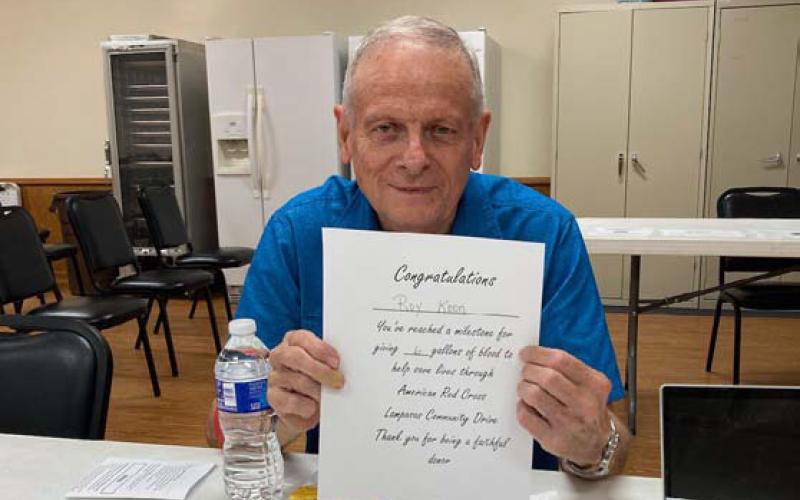 Congratulations
Roy Koon
You've reached a milestone for
giving 6 gallons of blood to
help save lives through
American Red Cross
Lampasas Community Drive
Thank you for being a faithful
donor